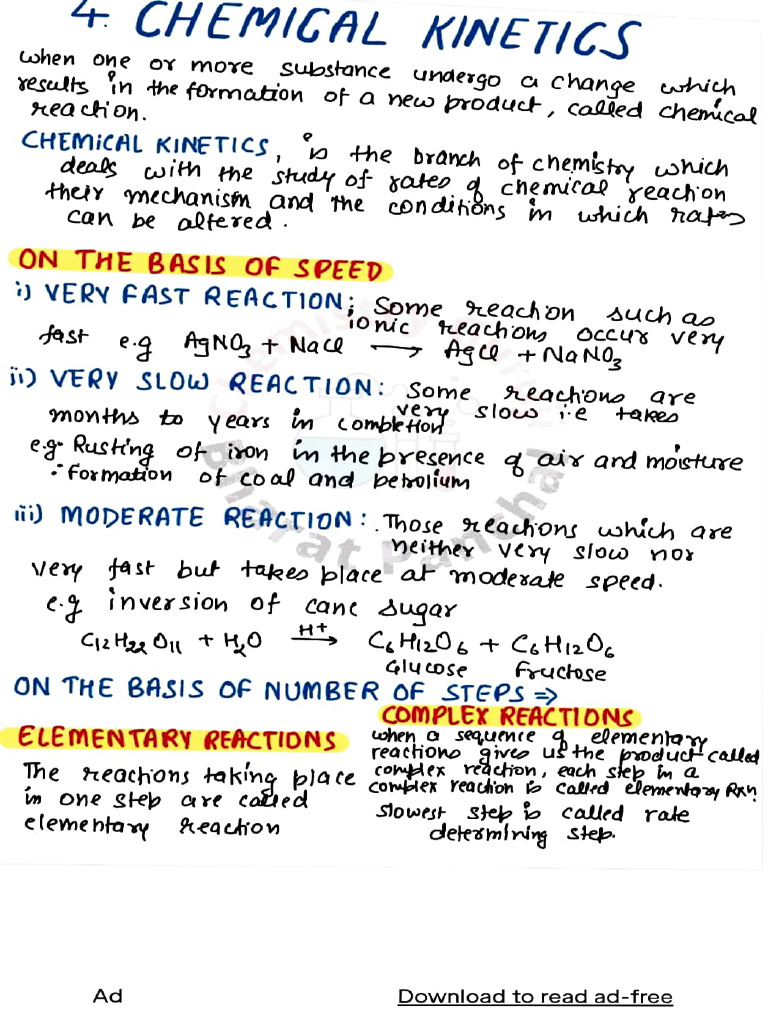 4. CHEMICAL KINETICS
when one or more substance undergo a change which
results in the formation of a new product, called chemical
reaction.
CHEMICAL KINETICS, is the branch of chemistry which
deals with the study of rates of chemical reaction
their mechanism and the conditions in which rates
can be altered.
ON THE BASIS OF SPEED
i) VERY FAST REACTION; Some reaction such as
ionic reactions occur very
fast e.g AgNO3 + NaCl ⟶ AgCl + NaNO3
ii) VERY SLOW REACTION: Some reactions are
very slow i.e takes
months to years in completion
e.g- Rusting of iron in the presence of air and moisture
∵ formation of coal and petrolium
iii) MODERATE REACTION: Those reactions which are
neither very slow nor
very fast but takes place at moderate speed.
e.g inversion of cane sugar
C12H22O11 + H2O H+⟶ C6H12O6 + C6H12O6
Glucose Fructose
ON THE BASIS OF NUMBER OF STEPS ⇒
ELEMENTARY REACTIONS
The reactions taking place
in one step are called
elementary reaction
COMPLEX REACTIONS
when a sequence of elementary
reactions gives us the product called
complex reaction, each step in a
complex reaction is called elementary Rxn.
slowest step is called rate
determining step.
Bharat Panchal
Ad
Download to read ad-free